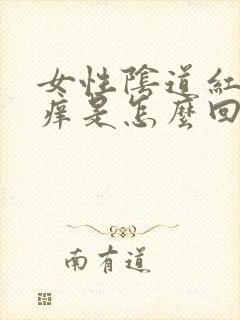 女性陰道紅
痒是怎麼回
南有道